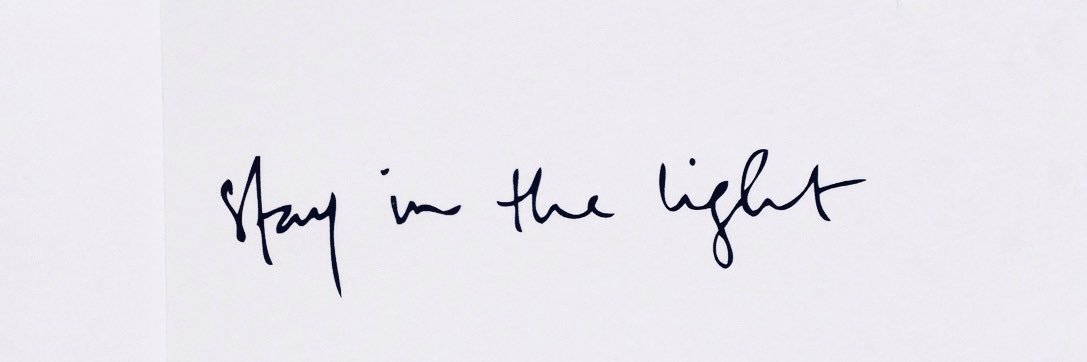 stay in the light